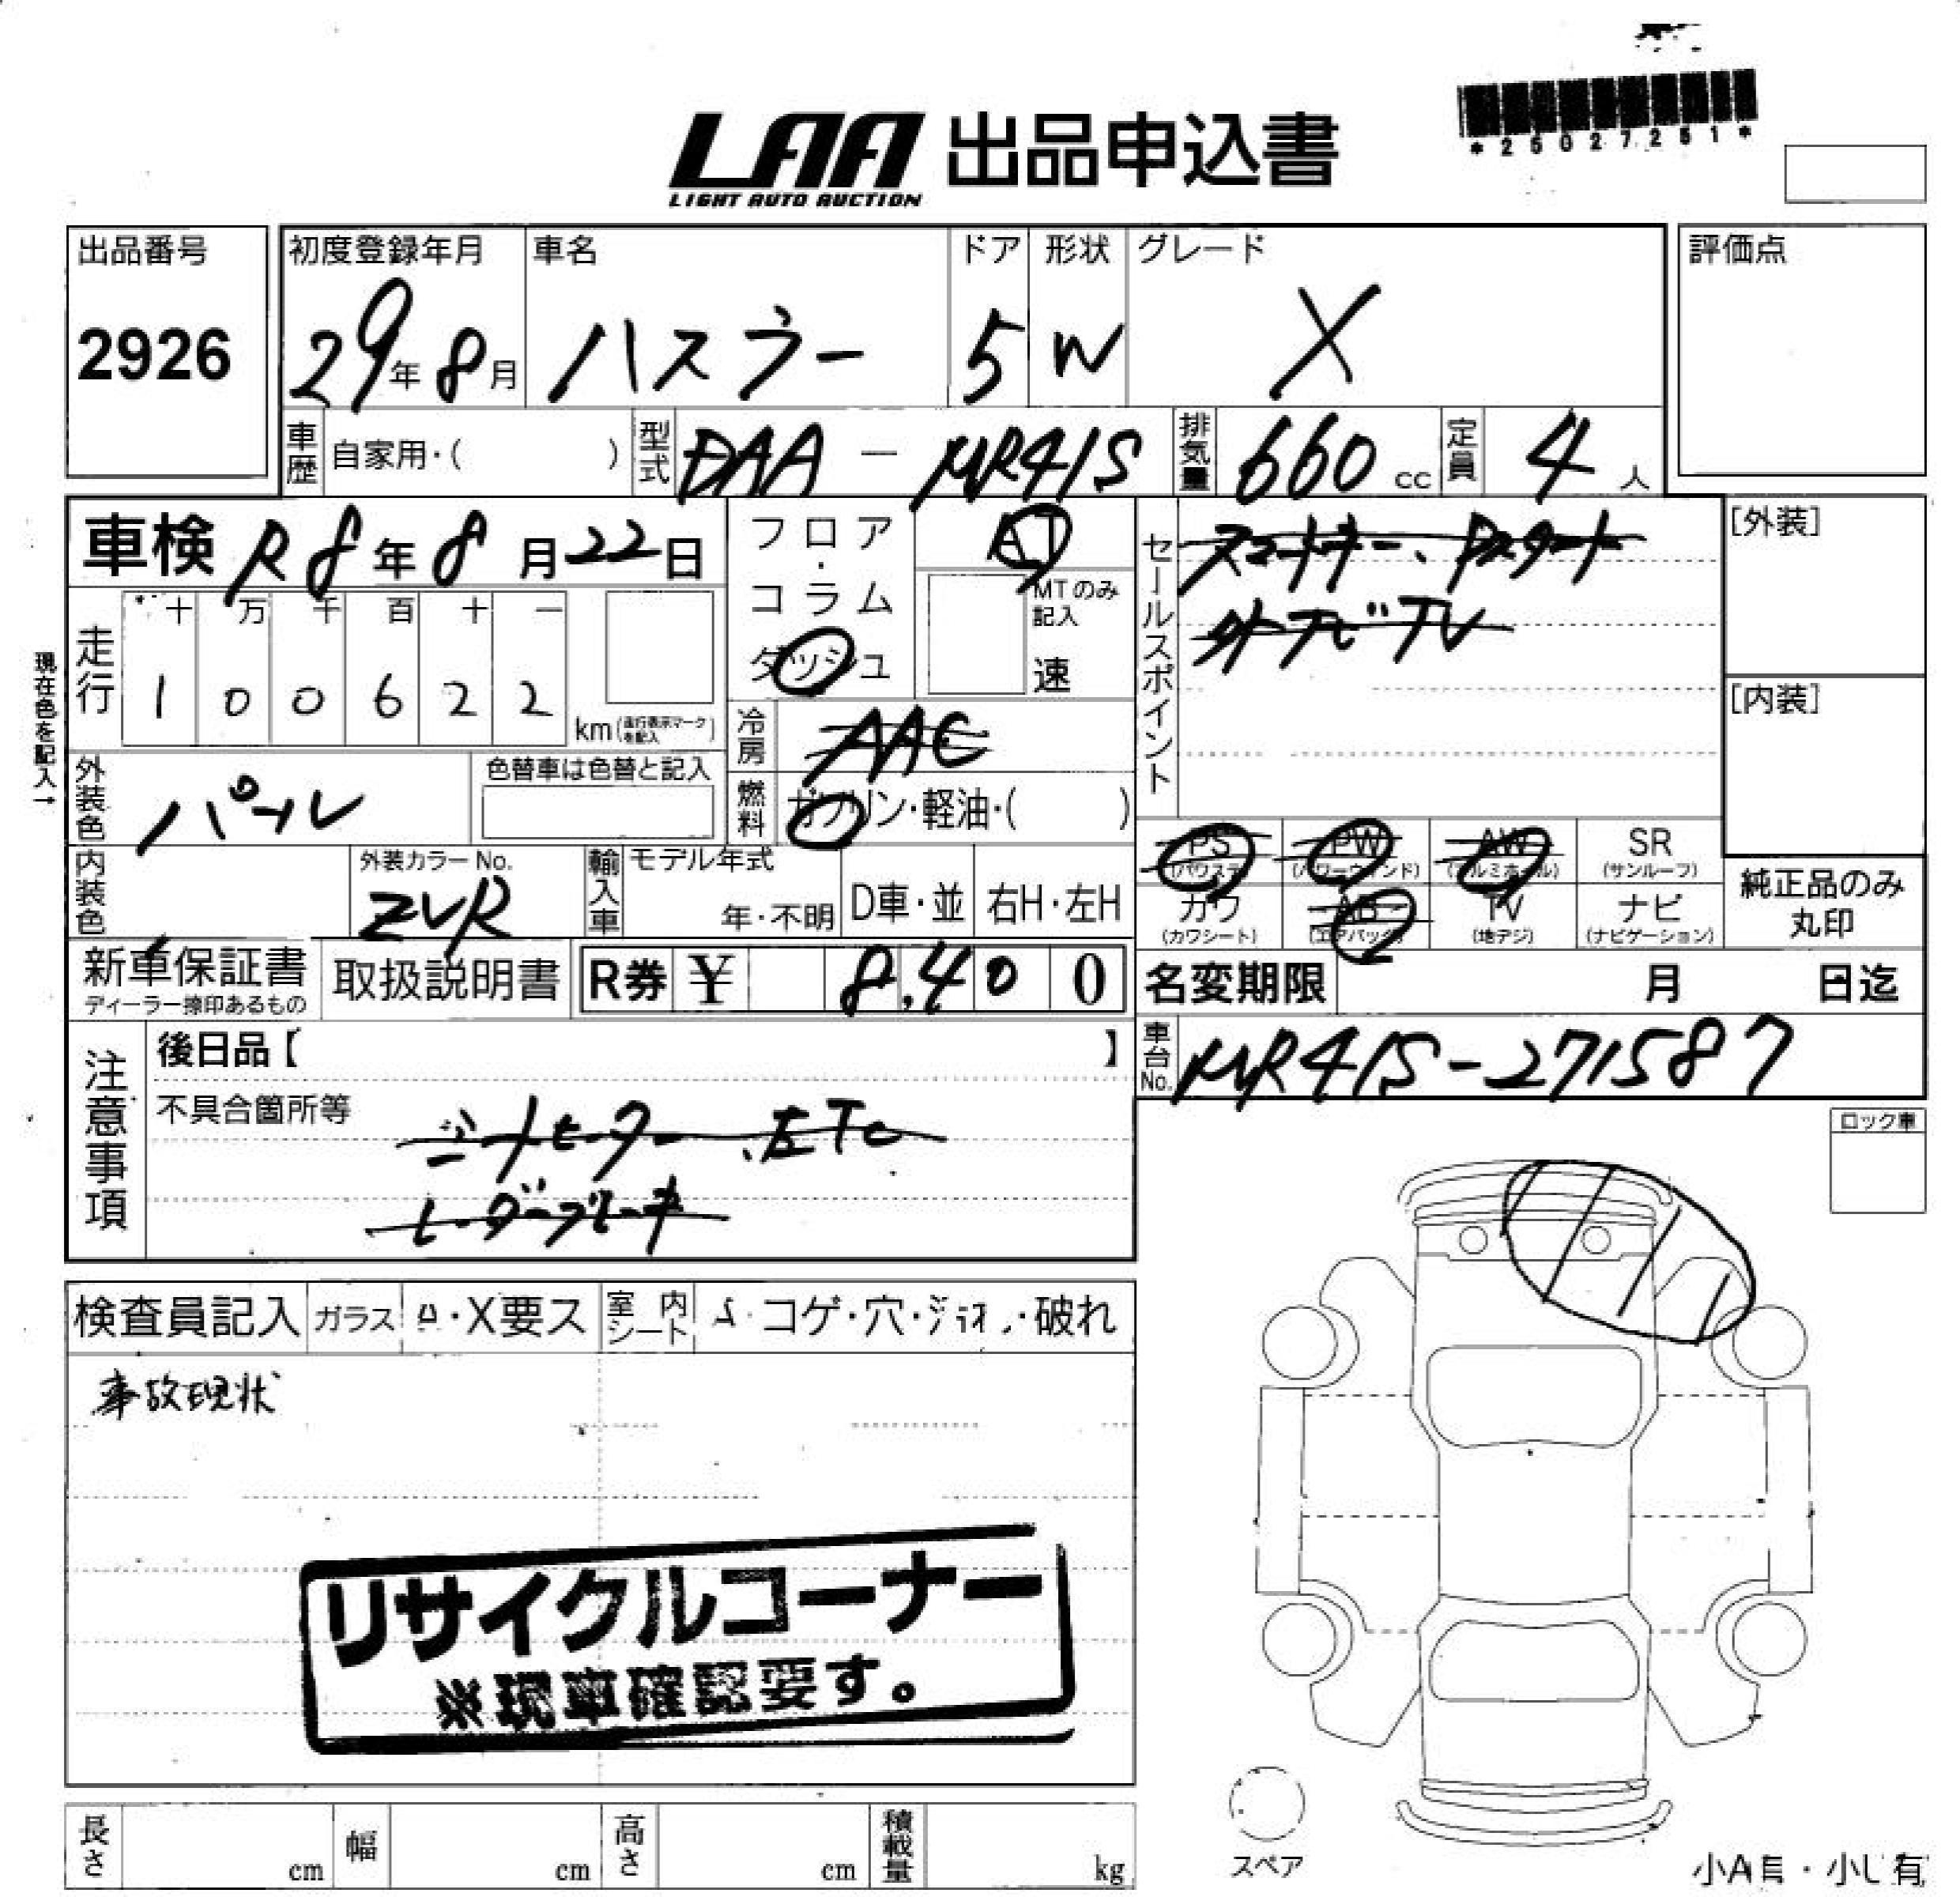 *25027251*
LAA 出品申込書
LIGHT AUTO AUCTION
出品番号 初度登録年月 車名 ドア 形状 グレード 評価点
2926 29年8月 ハスラー 5 W X
車歴 自家用・( ) 型式 DAA - MR41S 排気量 660 cc 定員 4 人
車検 R8年8月22日 フロア・コラム・ダッシュ AT
MTのみ記入 速
セールスポイント
スマートキー、Pスタート
ナビTV
[外装]
[内装]
現在色を記入→
走行 十 万 千 百 十 一
1 0 0 6 2 2 km (走行表示マークを記入)
冷房 AAC
外装色 パール 色替車は色替と記入
燃料 ガソリン・軽油・( )
PS (パワステ) PW (パワーウインド) AW (アルミホイール) SR (サンルーフ)
カワ (カワシート) AB (エアバッグ) TV (地デジ) ナビ (ナビゲーション)
純正品のみ丸印
内装色 外装カラーNo. ZVR 輸入車 モデル年式 年・不明 D車・並 右H・左H
新車保証書 ディーラー捺印あるもの 取扱説明書 R券 ¥ 8,400
名変期限 月 日迄
注意事項 後日品【 】
車台No. MR41S-271587
不具合箇所等
シートヒーター、ETC
レーダーブレーキ
ロック車
検査員記入 ガラス ・X要ス 室内シート ・コゲ・穴・・破れ
事故現状
リサイクルコーナー
※現車確認要す。
長さ cm 幅 cm 高さ cm 積載量 kg
スペア
小A有・小U有